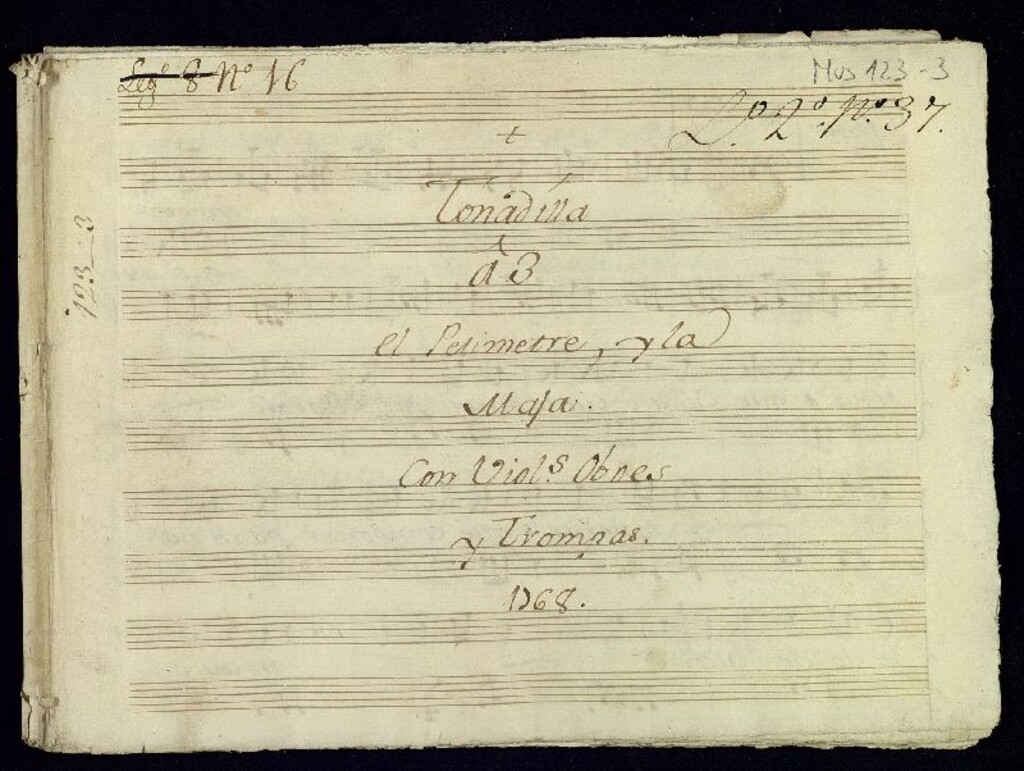 Legº 8 Nº 16
Mus 123-3
Lº 2º. Nº 37.
+
Tonadilla
à 3
el Petimetre, y la
Maja.
Con Viol.s Obues
y Trompas.
1768.
123-3